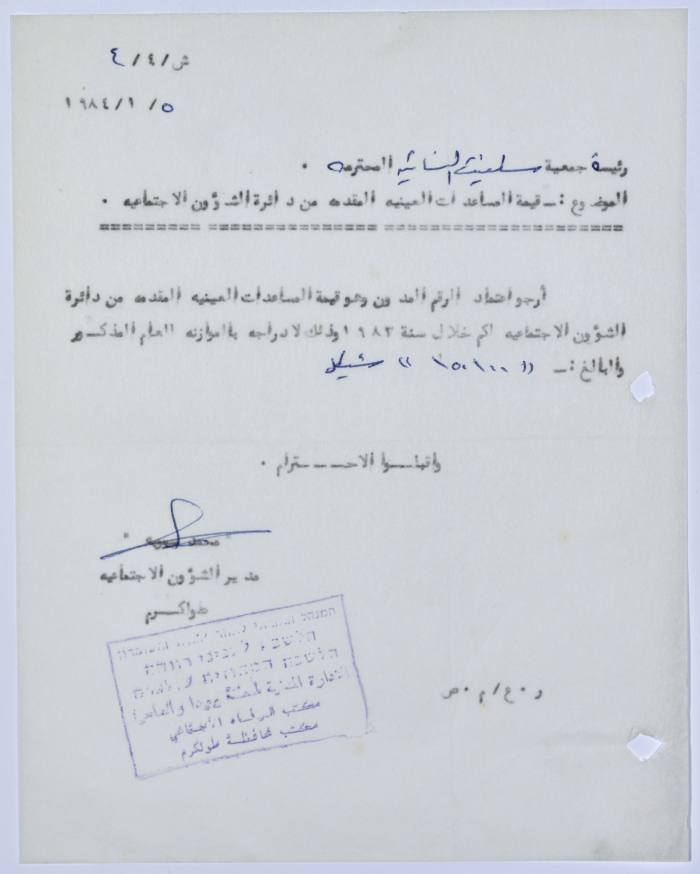 ش/٤/٤
١٩٨٤/١/٥
رئيسة جمعية سلفيت النسائيه المحترمه ٠
الموضوع :ــ قيمة المساعدات العينيه المقدمه من دائرة الشؤون الاجتماعيه ٠
أرجو اعتماد الرقم المدون وهو قيمة المساعدات العينيه المقدمه من دائرة
الشؤون الاجتماعيه لكم خلال سنة ١٩٨٣ وذلك لادراجه بالموازنه العام المذكــور
والبالغ :ــ (( ١٥٠١٠٠ )) شيكل
واقبلــوا الاحــــترام ٠
" محمد "
مدير الشؤون الاجتماعيه
طولكــرم
הלשכה לעניני רווחה
הלשכה המחוזית
الادارة المدنية لمنطقة يهودا والسامرة
مكتب الرفاه الاجتماعي
مكتب محافظة طولكرم
ر ٠ ع / م ٠ ص